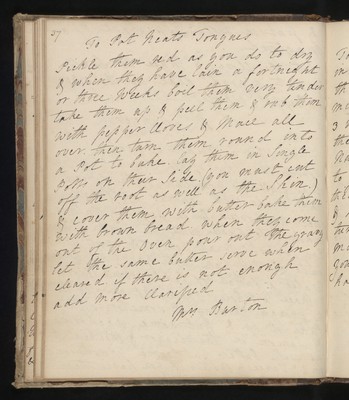 57
To Pot Neats Tongues
Pickle them red as you do to dry
& when they have lain a fortnight
or three Weeks boil them very tender
take them up & peel them & rub them
with pepper Cloves & Mace all
over then turn them round into
a Pot to bake. lay them in Single
Potts on their Side (you must cut
off the root as well as the Skin)
& cover them with butter bake them
with brown bread when they come
out of the Oven pour out the gravy
let the same butter serve when
cleared if there is not enough
add more Clarified
Mrs Barton